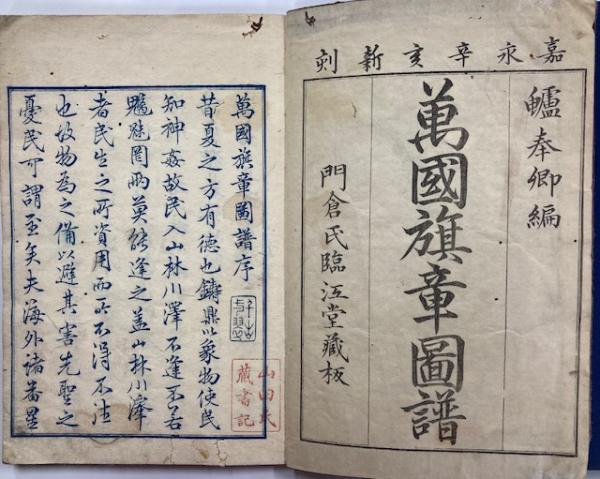 嘉永辛亥新刻
鱸奉卿編
萬國旗章圖譜
門倉氏臨江堂藏板
萬國旗章圖譜序
昔夏之方有德也鑄鼎以象物使民
知神姦故民入山林川澤不逢不若
魑魅罔兩莫能逢之蓋山林川澤
者民生之所資用而不得不往
也故物為之備以避其害先聖之
憂民可謂至矣夫海外諸番星
山田氏
藏書記